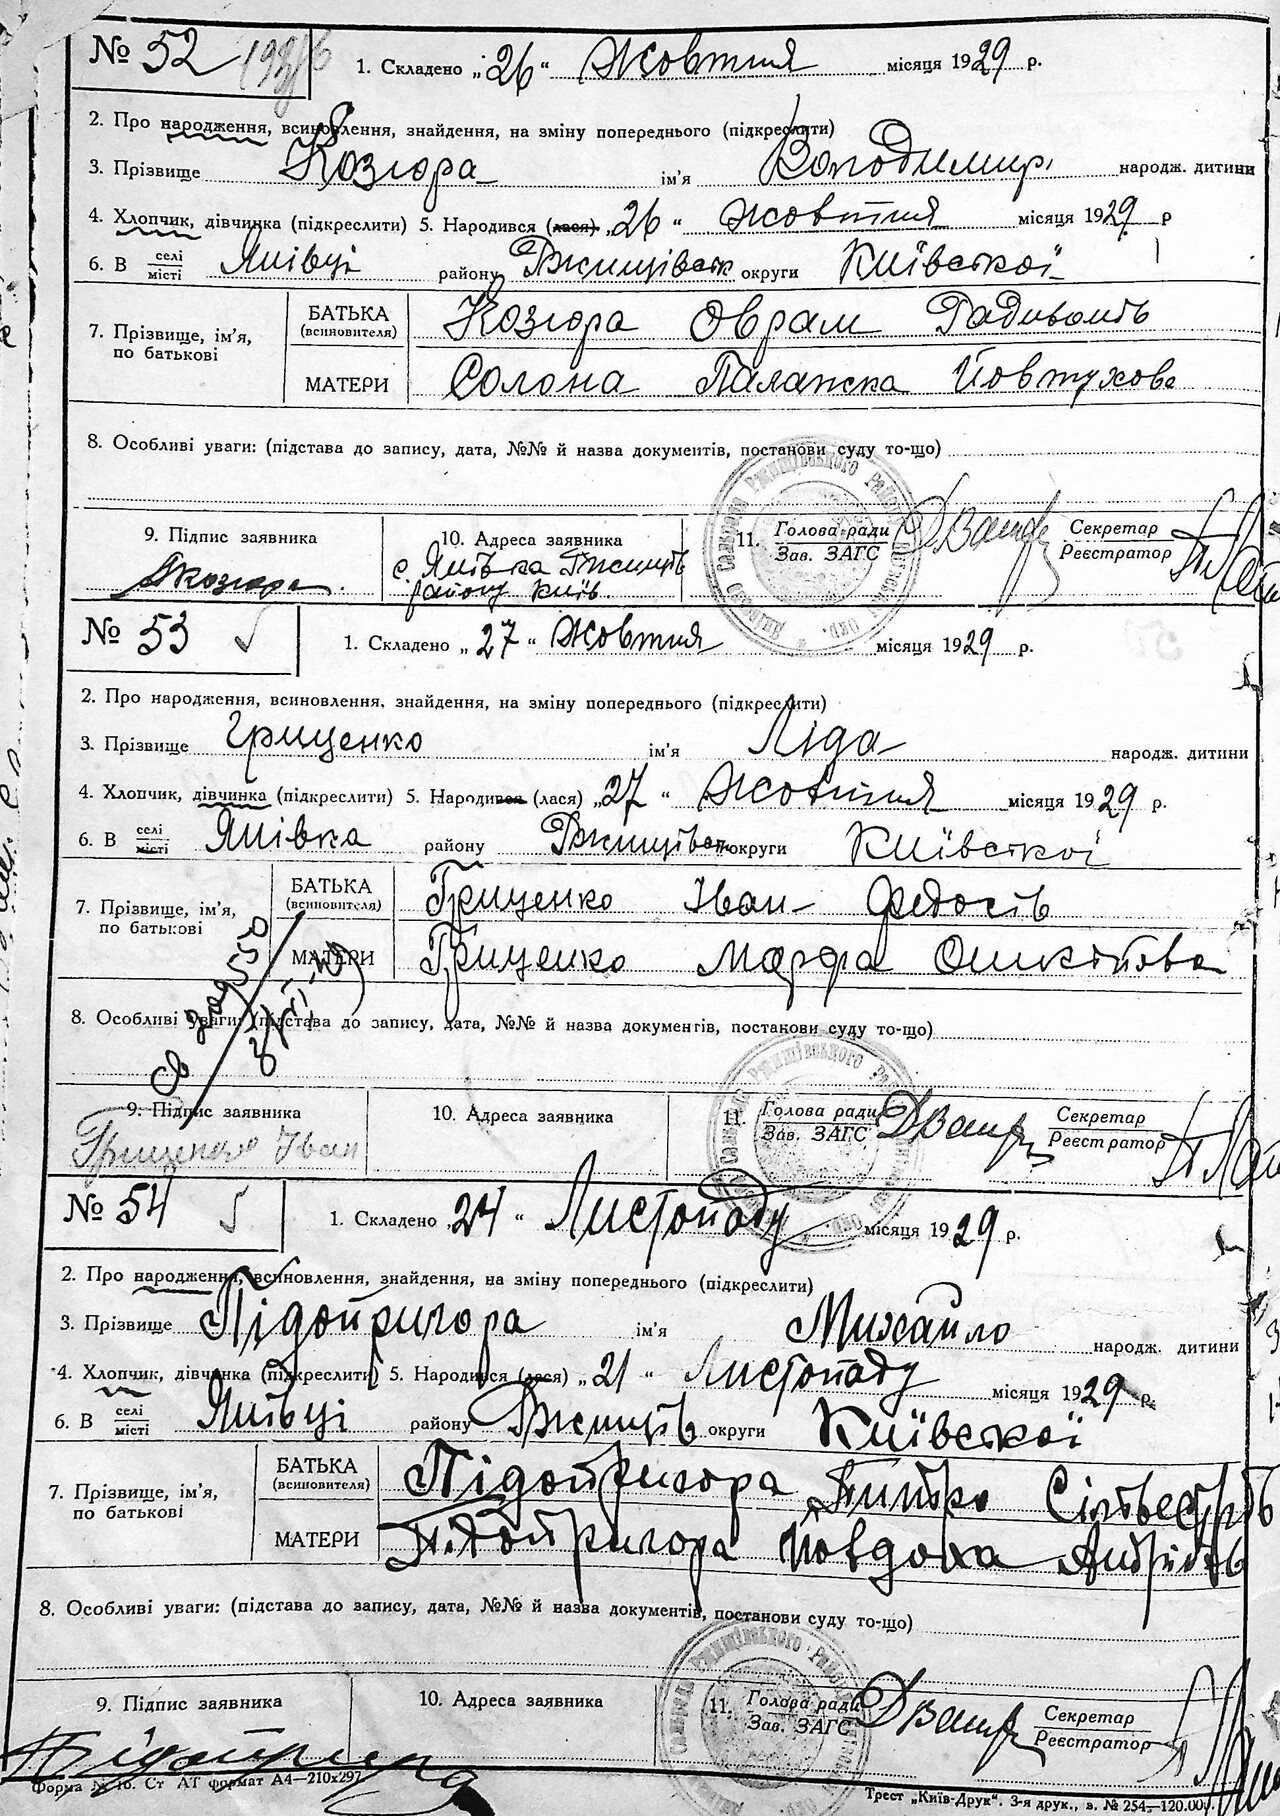 № 52
1. Складено „26“ Жовтня місяця 1929 р.
2. Про народження, всиновлення, знайдення, на зміну попереднього (підкреслити)
3. Прізвище Козюра ім'я Володимир народж. дитини
4. Хлопчик, дівчинка (підкреслити) 5. Народився (лася) „26“ Жовтня місяця 1929 р
6. В селі місті Янівці району Ржищівськ округи Київської
7. Прізвище, ім'я, по батькові
БАТЬКА (всиновителя) Козюра Оврам
МАТЕРИ Солона Палажка Йовтухова
8. Особливі уваги: (підстава до запису, дата, №№ й назва документів, постанови суду то-що)
9. Підпис заявника
10. Адреса заявника
11. Голова ради Зав. ЗАГС
Секретар Реєстратор
Козюра
с. Янівка Ржищів
району Київ.
№ 53
1. Складено „27“ Жовтня місяця 1929 р.
2. Про народження, всиновлення, знайдення, на зміну попереднього (підкреслити)
3. Прізвище Гриценко ім'я Ліда народж. дитини
4. Хлопчик, дівчинка (підкреслити) 5. Народився (лася) „27“ Жовтня місяця 1929 р.
6. В селі місті Янівка району Ржищівськ округи Київської
7. Прізвище, ім'я, по батькові
БАТЬКА (всиновителя) Гриценко Іван Федосів
МАТЕРИ Гриценко Марфа
8. Особливі уваги: (підстава до запису, дата, №№ й назва документів, постанови суду то-що)
9. Підпис заявника
10. Адреса заявника
11. Голова ради Зав. ЗАГС
Секретар Реєстратор
Гриценко Іван
№ 54
1. Складено „24“ Листопаду місяця 1929 р.
2. Про народження, всиновлення, знайдення, на зміну попереднього (підкреслити)
3. Прізвище Підопригора ім'я Михайло народж. дитини
4. Хлопчик, дівчинка (підкреслити) 5. Народився (лася) „21“ Листопаду місяця 1929 р.
6. В селі місті Янівці району Ржищів округи Київської
7. Прізвище, ім'я, по батькові
БАТЬКА (всиновителя) Підопригора Сільвестрів
МАТЕРИ Підопригора Йовдоха Андріїв
8. Особливі уваги: (підстава до запису, дата, №№ й назва документів, постанови суду то-що)
9. Підпис заявника
10. Адреса заявника
11. Голова ради Зав. ЗАГС
Секретар Реєстратор
Підопригора
Форма № 16. Ст АТ формат А4—210х297
Трест „Київ-Друк“. 3-я друк., в. № 254—120.000.